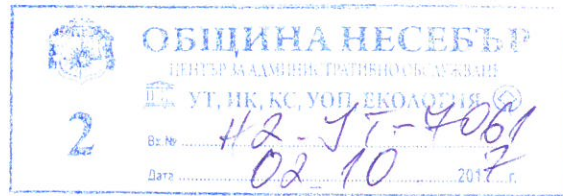 ОБЩИНА НЕСЕБЪР
ЦЕНТЪР ЗА АДМИНИСТРАТИВНО ОБСЛУЖВАНЕ
УТ, ИК, КС, УОП, ЕКОЛОГИЯ
2
Вх.№ Н2-УТ-7061
Дата 02 10 2017 г.